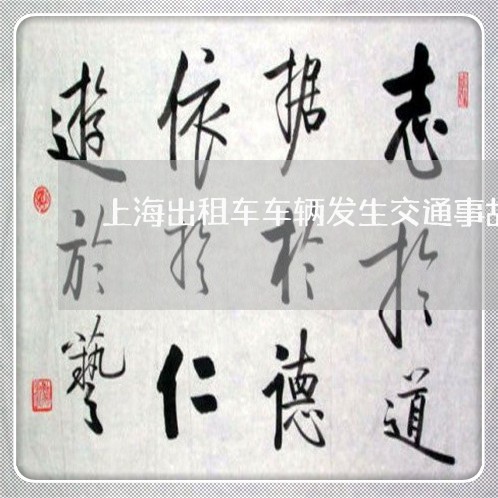 志於道
据於德
依於仁
遊於藝
上海出租车车辆发生交通事故